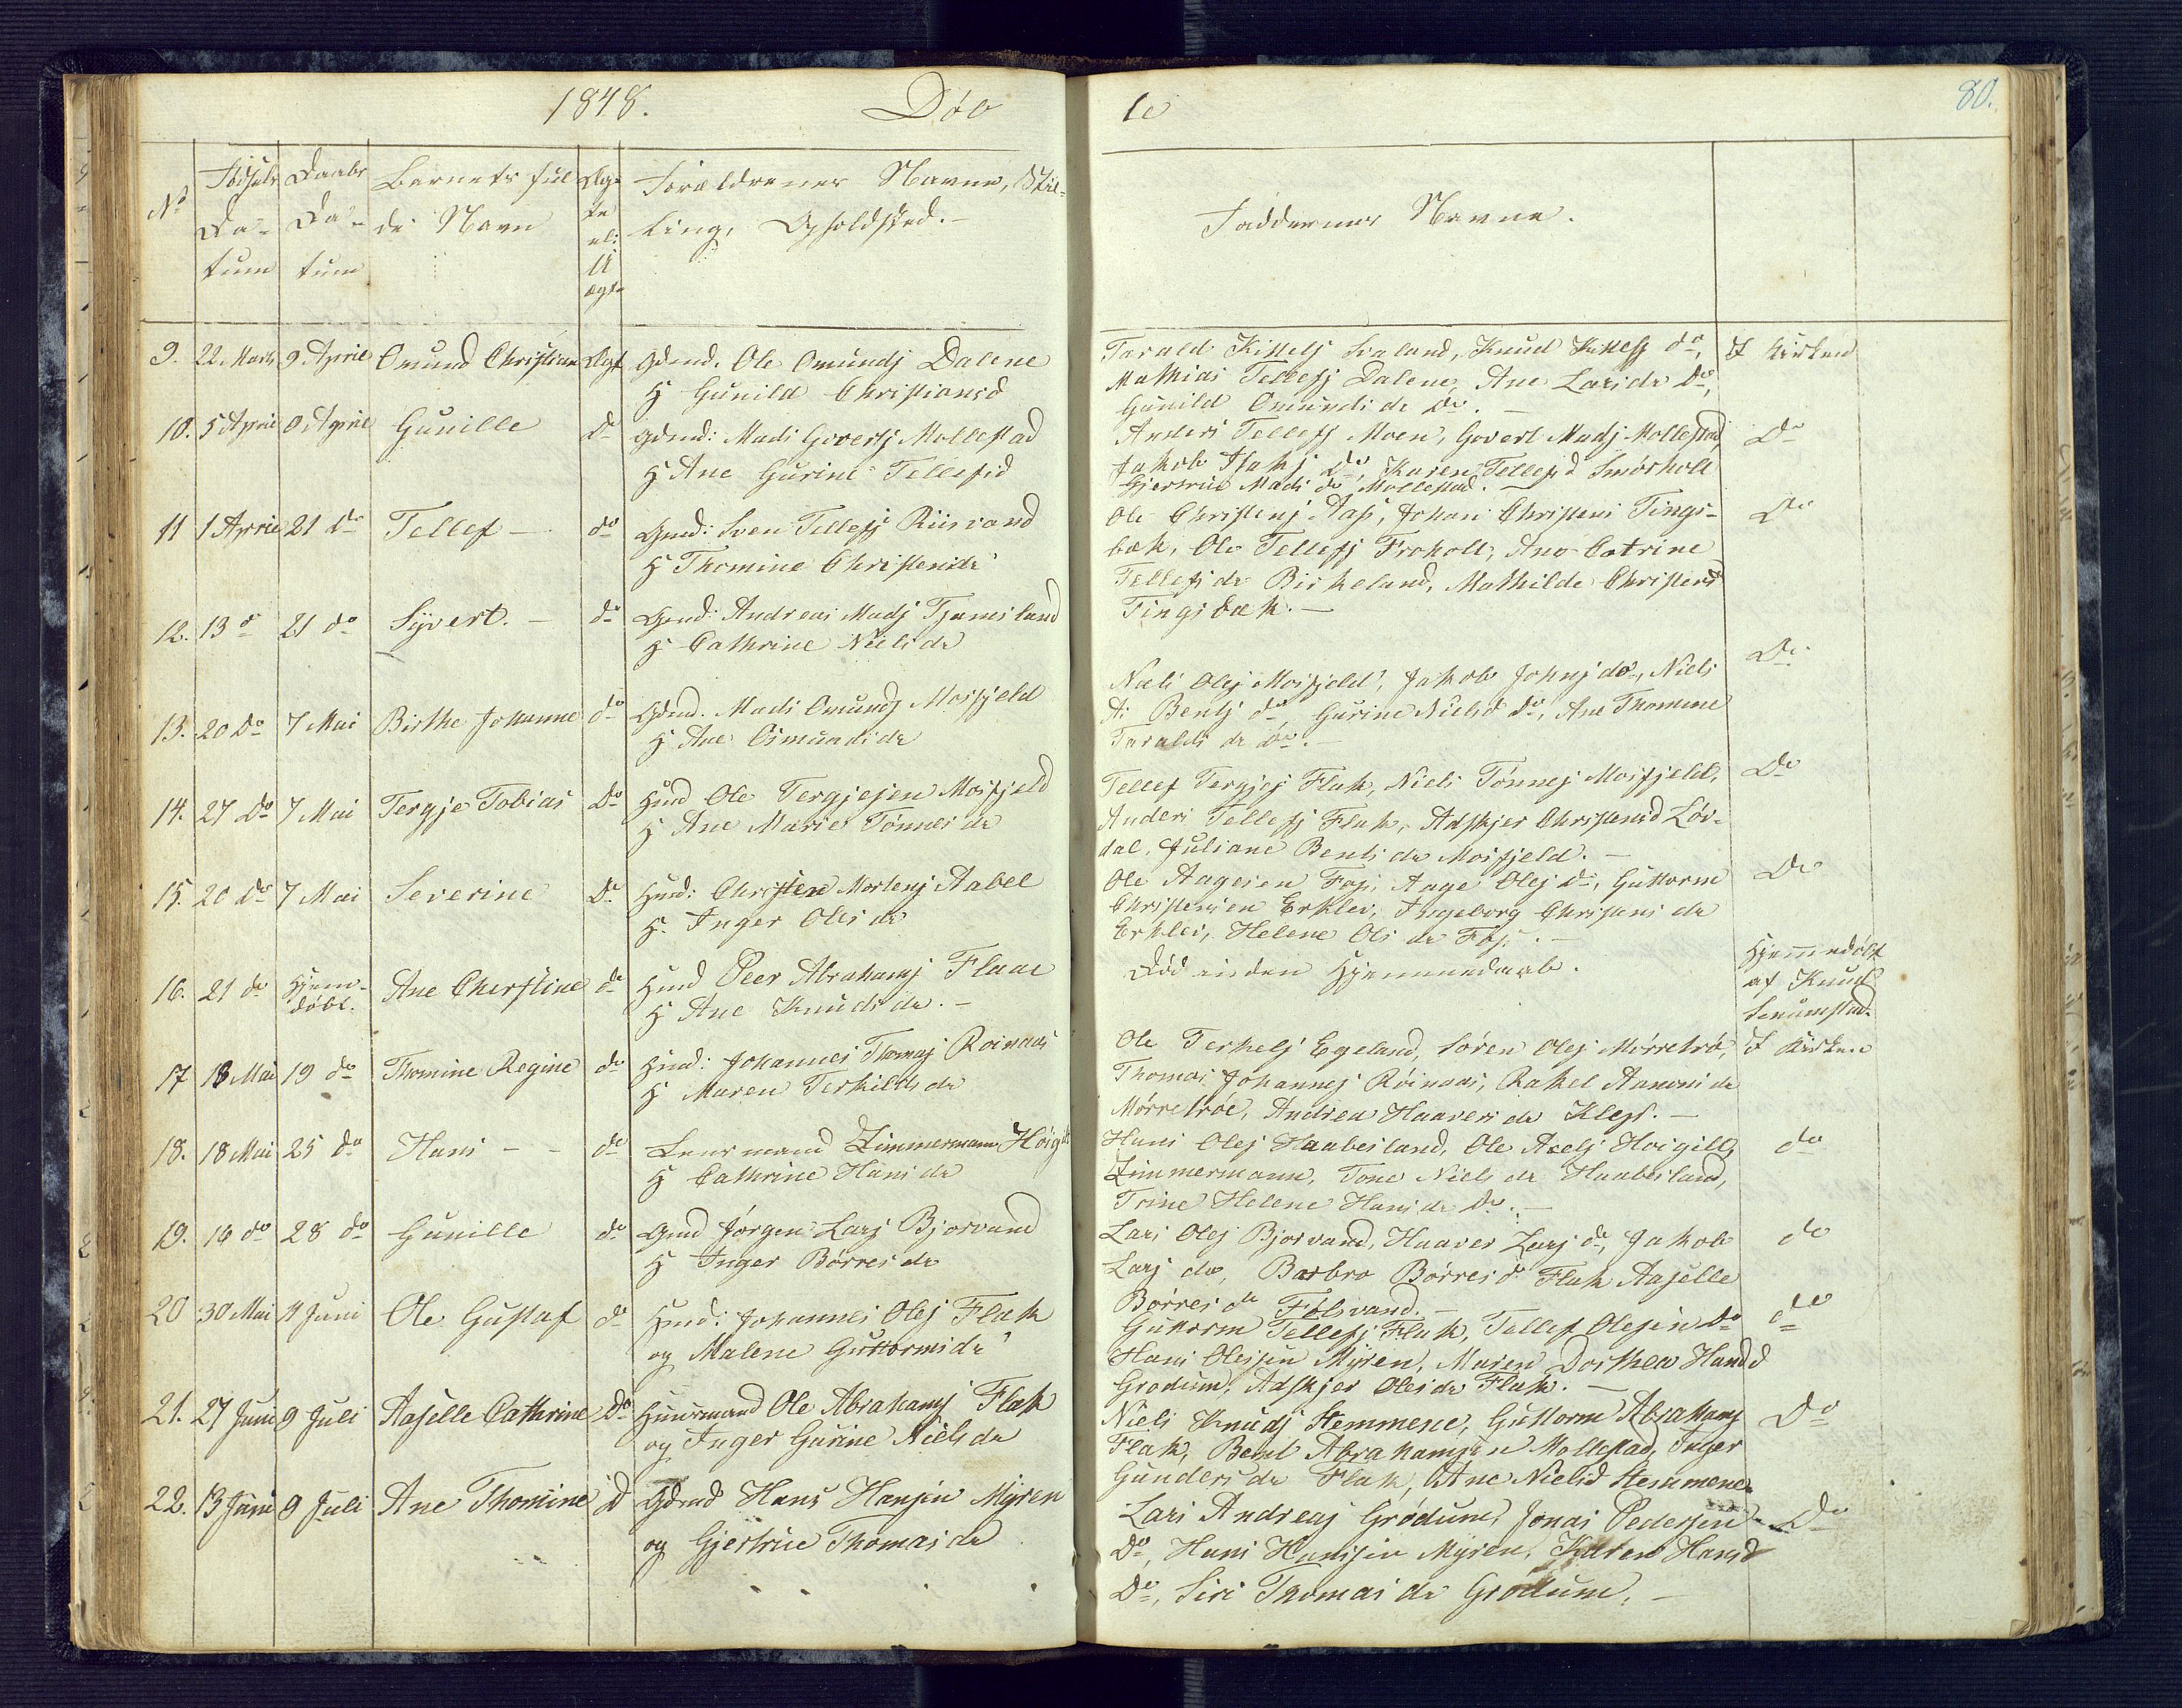 1848. Døb
te
80.
No Fødsels Daabs Barnets ful Ægte Forældrenes Navne, Stil-
Da- Da- de Navn el: ling, Opholdsted.-
tum tum U
ægte
Faddernes Navne.
9. 22 Marts 9 April Omund Christian Ægt Gdmd. Ole Omundsj Dalene
H Gunild Christiansd
Tarald Kittelsj Svaland, Knud Kittelsj do, I Kirken
Mathias Tellefsj Dalene, Ane Larsdr Do,
Gunild Omunds dr Do. -
10. 5 April 9 April Gunille Do Gdmd: Mads Govertsj Mollestad
H Ane Gurine Tellefsd
Anders Tellefsj Moen, Govert Madsj Mollestad, Do
Jakob Isaksj Do, Karen Tellefsd Smørholt
Gjertrue Mads dr Mollestad. -
11 1 April 21 do Tellef - do Gmd: Sven Tellefsj Risvand
H Thomine Christensdr
Ole Christensj Aas, Johan Christens Tings- Do
bæk, Ole Tellefsj Froholt, Ane Catrine
Tellefs dr Birkeland, Mathilde Christensd
Tingsbæk. -
12. 13 do 21 do Syvert. - do Gmd: Andreas Madsj Tjamsland
H Cathrine Niels dr
Do
13. 20 Do 7 Mai Birthe Johanne do Gdmd. Mads Omundsj Mosfjeld
H Ane Osmunds dr
Niels Olsj Mosfjeld, Jakob Johnsj do, Niels
A: Bentsj do, Gurine Nielsd Do, Ane Thomine
Taralds dr Do. -
14. 27 Do 7 Mai Tergje Tobias Do Hmd Ole Tergjesen Mosfjeld
H Ane Marie Tønnes dr
Tellef Tergjesj Flak, Niels Tønnesj Mosfjeld, Do
Anders Tellefsj Flak, Adskjer Christensd Løv-
dal, Juliane Bents dr Mosfjeld. -
15. 20 Do 7 Mai Severine Do Hmd: Christen Mortensj Aabel
H. Inger Ols dr
Ole Aagesen Fos, Aage Olsj Do, Guttorm Do
Christensen Erklev, Ingeborg Christens dr
Erklev, Helene Ols dr Fos. -
16. 21 do Hjem- Ane Cherstine do Hmd Peer Abrahamsj Flaae
døbt. H Ane Knuds dr. -
Død inden Hjemmedaab. Hjemmedøbt
af Knud
Senumstad.
17 18 Mai 19 do Thomine Regine do Hmd: Johannes Thomasj Roinaas
H Maren Terkilds dr
Ole Terkelsj Egeland, Søren Olsj Mørretrø, I Kirken
Thomas Johannesj Röinaas, Rakel Aanons dr
Mørretröe, Andrea Haavers dr Klep. -
18. 18 Mai 25 do Hans - - do Lensmand Zimmermann Høigilt
H Cathrine Hans dr
Hans Olsj Haabesland, Ole Axelsj Hoigilt, do
Zimmermann, Tone Niels dr Haabesland,
Trine Helene Hans dr Do. -
19. 16 do 28 do Gunille do Gmd Jørgen Larsj Bjorvand
H Inger Børres dr
Lars Olsj Bjorvand, Haaver Larsj do, Jakob do
Larsj do, Barbro Børresd Flak Aaselle
Børres dr Følsvand. -
20 30 Mai 11 Juni Ole Gustaf do Hmd: Johannes Olsj Flak
og Malene Guttormsdr
Guttorm Tellefsj Flak, Tellef Olesen Do do
Hans Olessen Myren, Maren Dorthea Handd
Grodum, Adskjer Ols dr Flak. -
21. 27 Juni 9 Juli Aaselle Cathrine Do Huusmand Ole Abrahamsj Flak
og Inger Gurine Niels dr
Niels Knudsj Stemmene, Guttorm Abrahamsj Do
Flak, Bent Abrahamsen Mollestad, Inger
Gunders dr Flak, Ane Nielsd Stemmene
22. 13 Juni 9 Juli Ane Thomine D Gdmd Hans Hansen Myren
og Gjertrue Thomas dr
Lars Andreasj Grødum, Jonas Pedersen Do
Do, Hans Hanssen Myren, Karen Hansd
Do, Siri Thomas dr Grødum. -